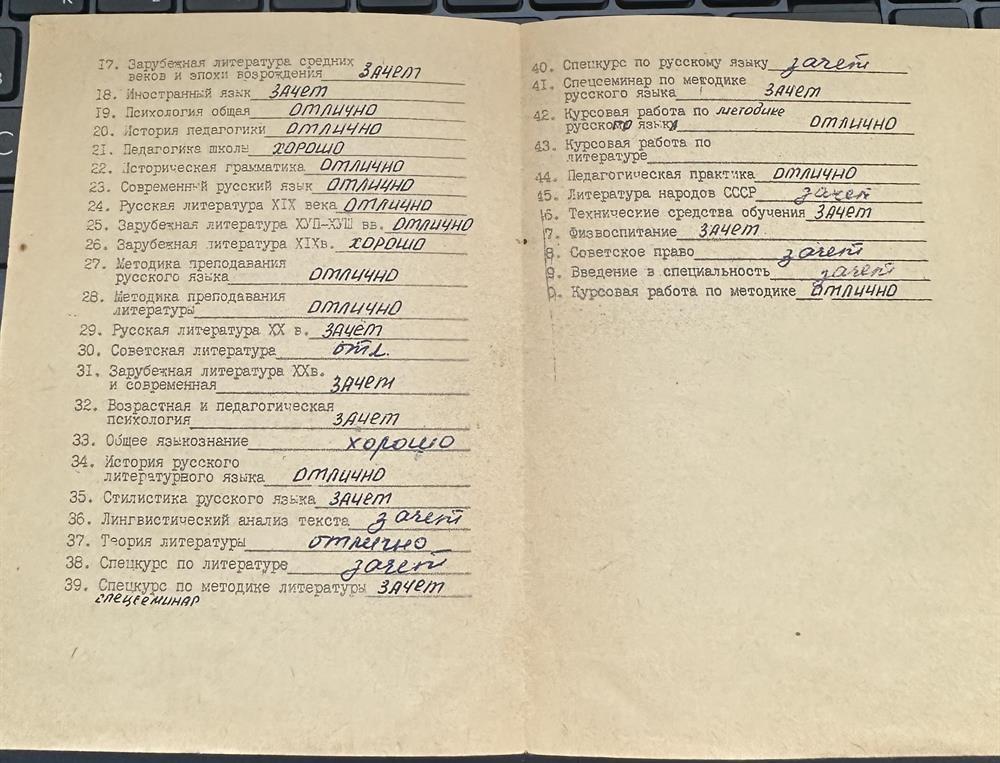 17. Зарубежная литература средних
веков и эпохи возрождения ЗАЧЕТ
18. Иностранный язык ЗАЧЕТ
19. Психология общая ОТЛИЧНО
20. История педагогики ОТЛИЧНО
21. Педагогика школы ХОРОШО
22. Историческая грамматика ОТЛИЧНО
23. Современный русский язык ОТЛИЧНО
24. Русская литература XIX века ОТЛИЧНО
25. Зарубежная литература ХУП-ХУШ вв. ОТЛИЧНО
26. Зарубежная литература XIXв. ХОРОШО
27. Методика преподавания
русского языка ОТЛИЧНО
28. Методика преподавания
литературы ОТЛИЧНО
29. Русская литература XX в. ЗАЧЕТ
30. Советская литература отл.
31. Зарубежная литература XXв.
и современная ЗАЧЕТ
32. Возрастная и педагогическая
психология ЗАЧЕТ
33. Общее языкознание хорошо
34. История русского
литературного языка ОТЛИЧНО
35. Стилистика русского языка ЗАЧЕТ
36. Лингвистический анализ текста зачет
37. Теория литературы отлично
38. Спецкурс по литературе зачет
39. Спецкурс по методике литературы ЗАЧЕТ
СПЕЦСЕМИНАР
40. Спецкурс по русскому языку зачет
41. Спецсеминар по методике
русского языка ЗАЧЕТ
42. Курсовая работа по методике
русского языка ОТЛИЧНО
43. Курсовая работа по
литературе
44. Педагогическая практика ОТЛИЧНО
45. Литература народов СССР зачет
6. Технические средства обучения ЗАЧЕТ
7. Физвоспитание ЗАЧЕТ
8. Советское право зачет
9. Введение в специальность зачет
0. Курсовая работа по методике ОТЛИЧНО